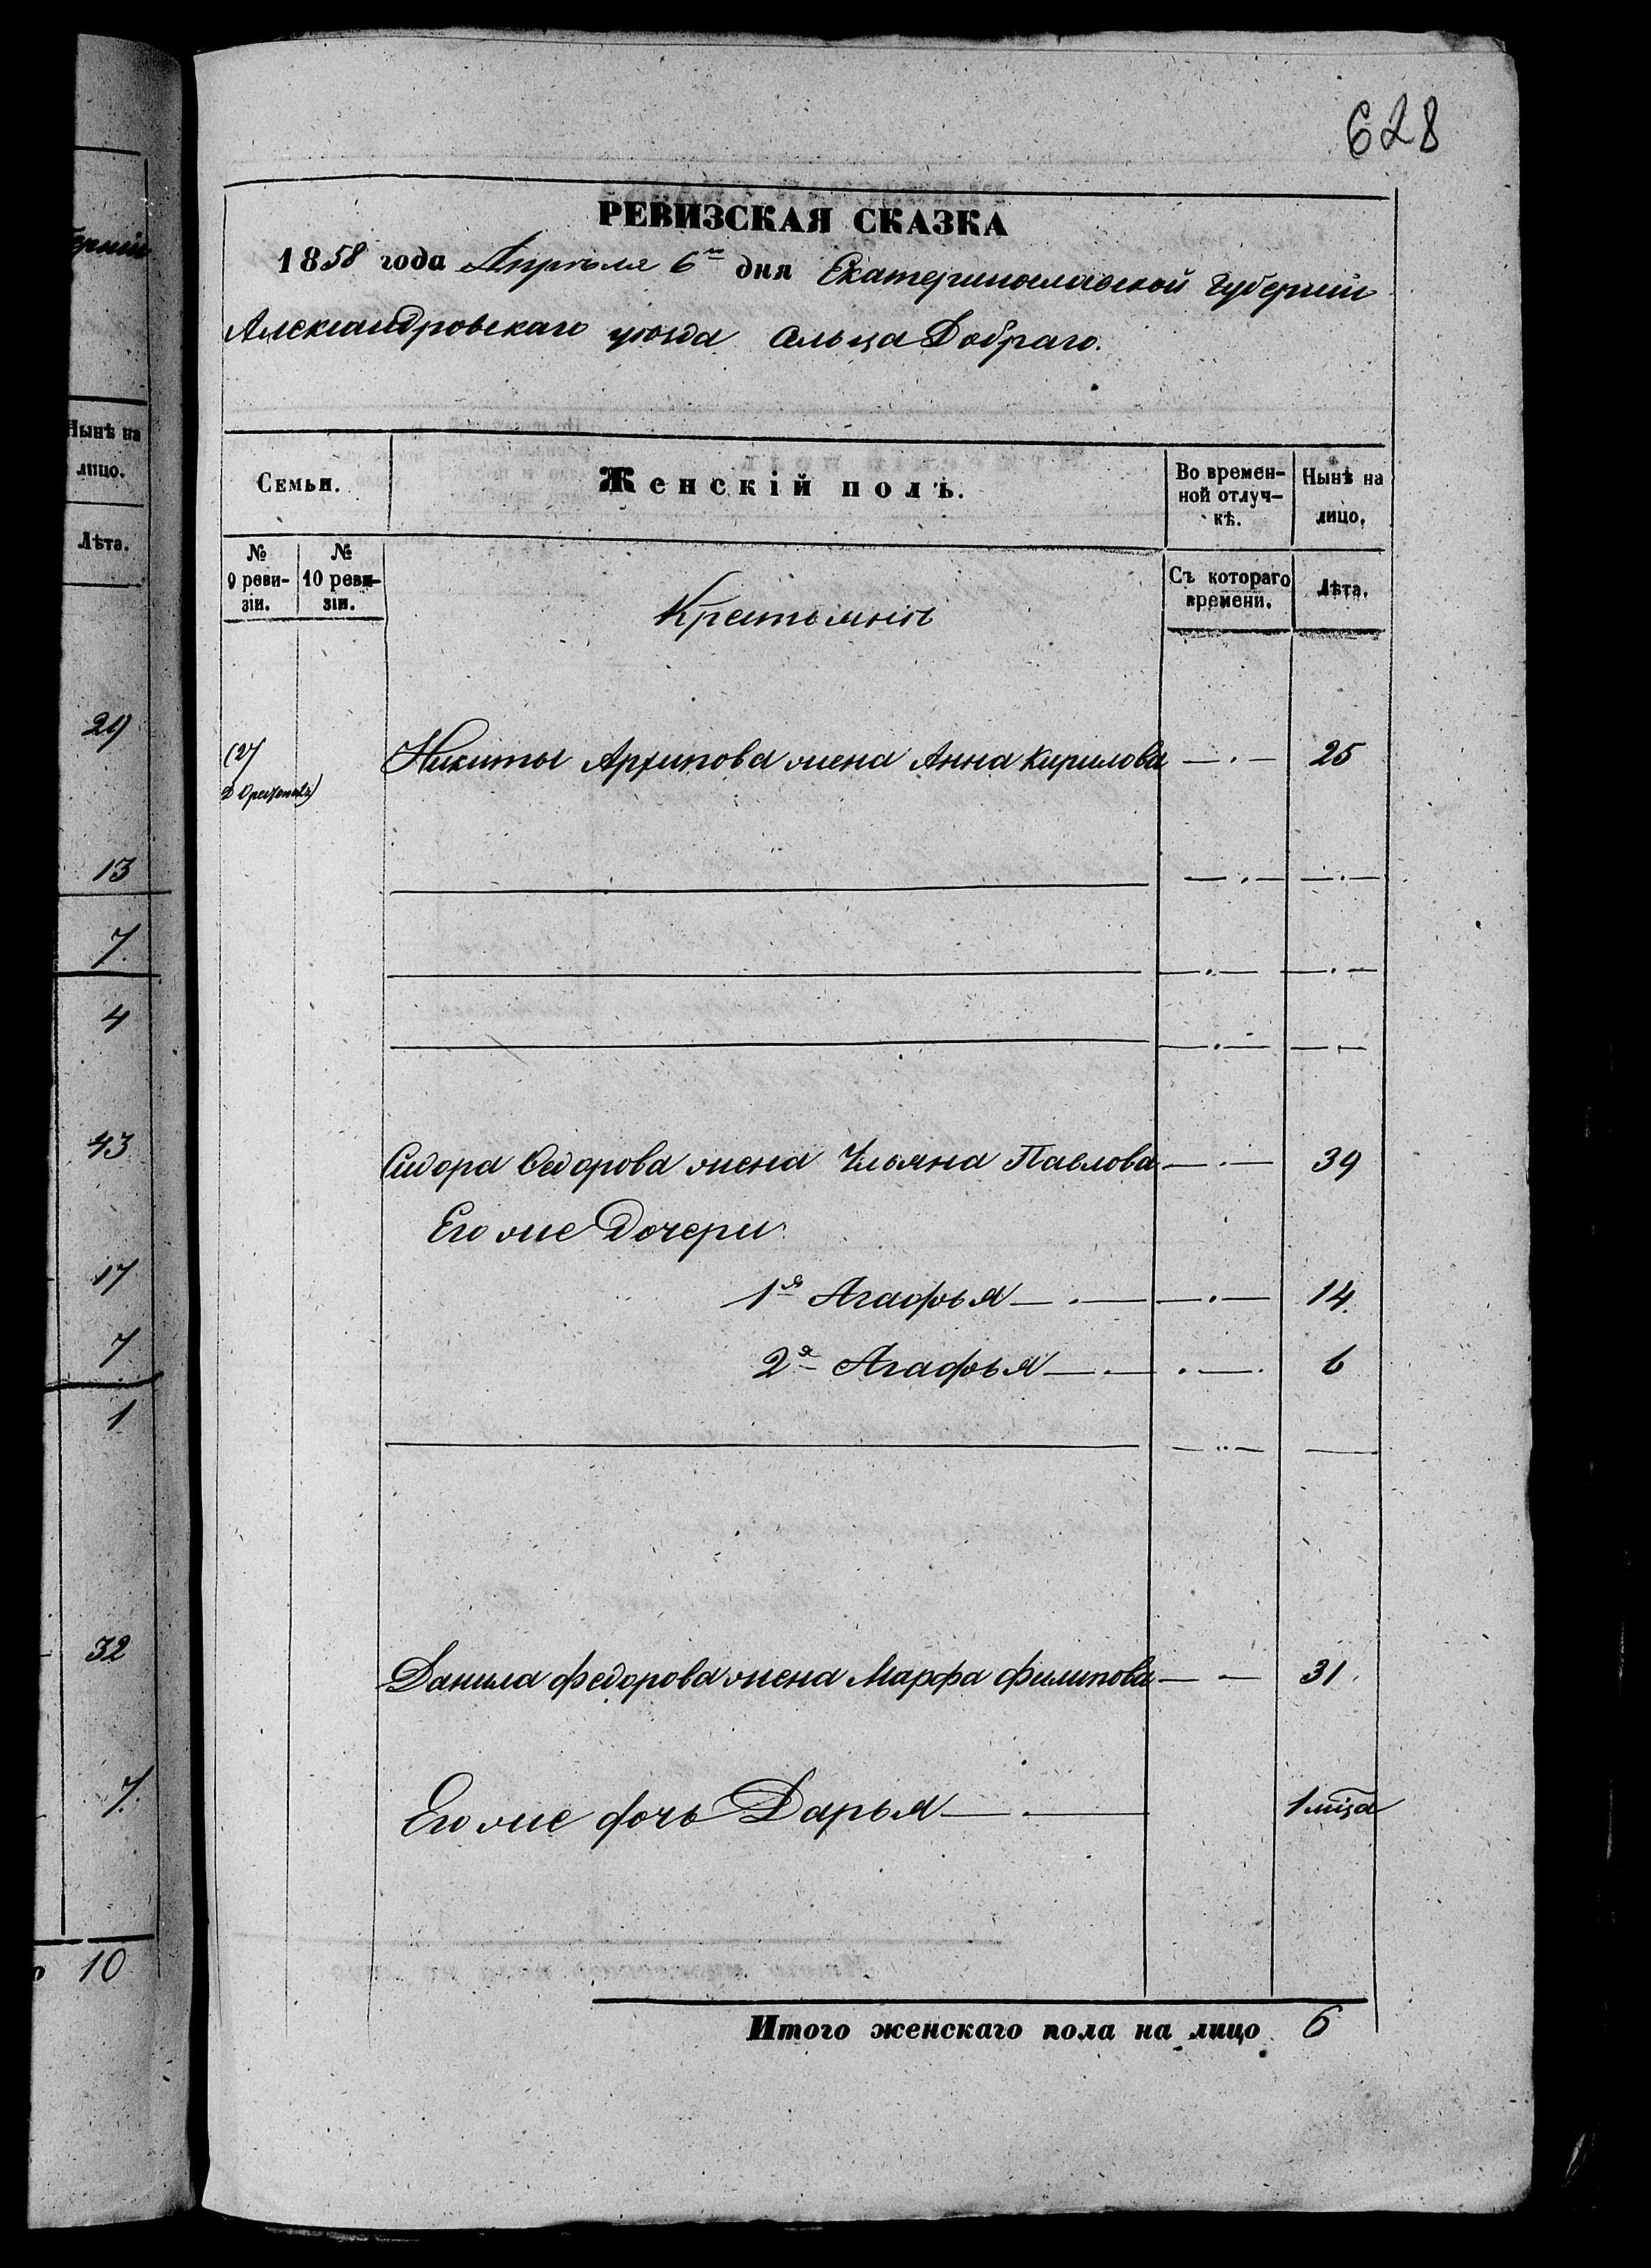 628
РЕВИЗСКАЯ СКАЗКА
1858 года Апрѣля 6го дня Екатеринославской губернiи
Александровскаго уѣзда Сельца Добраго.
Семьи.
Женскiй полъ.
Во времен-
ной отлуч-
кѣ.
Нынѣ на
лицо.
№
9 реви-
зiи.
№
10 реви-
зiи.
Съ котораго
времени.
Лѣта.
Крестьянѣ
(27
Никиты Архипова жена Анна Кирилова — . — 25
— . — — . —
— . — — . —
— . — — . —
Сидора Федорова жена Ульяна Павлова — . — 39
Его же Дочери
1я Агафья — . — — . — 14.
2я Агафья — . — . — . 6
— .. — —
Данила Федорова жена Марфа Филипова — — 31
Его же дочь Дарья — . — 1 мѣца
Итого женскаго пола на лицо 6
Нынѣ на
лицо.
Лѣта.
29
13
7.
4
43
17
7
1
32
7.
10